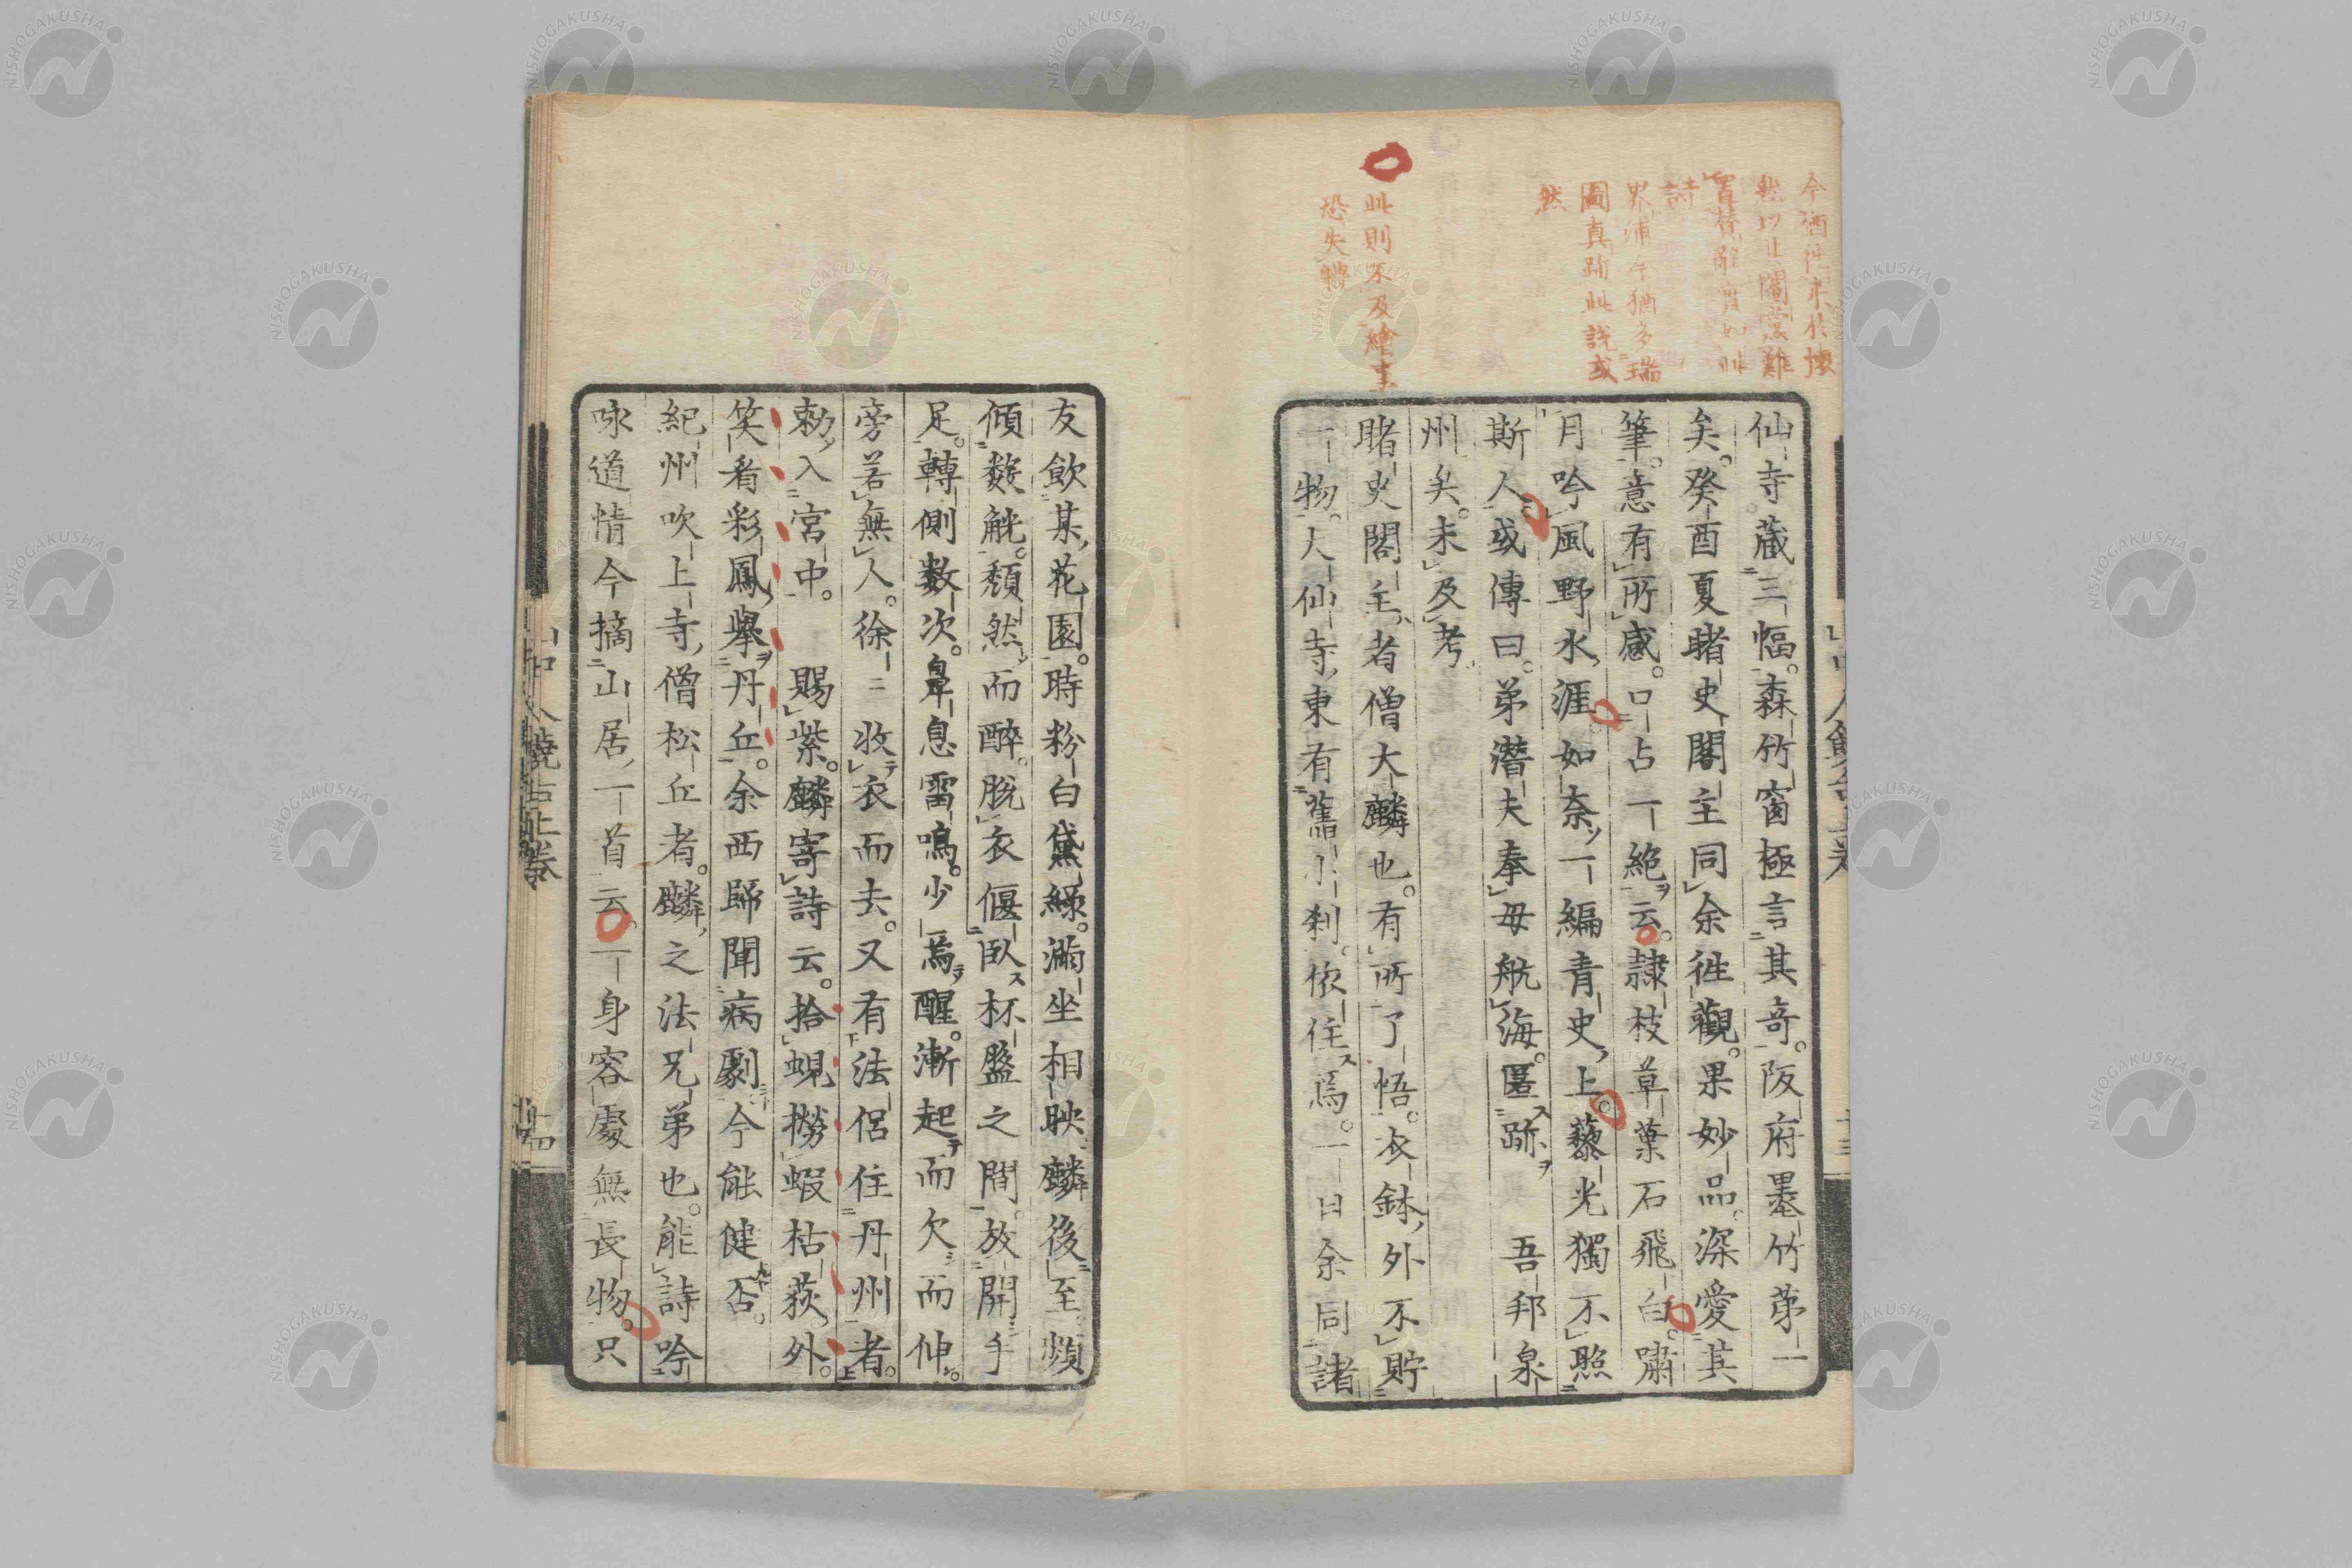 今猶往来於懐
然以止閣當難
詩
界浦今猶多瑞
圖真跡此説或
然
此則不及繪事
恐失轉
仙寺藏三幅。森竹窗極言其奇。阪府墨竹第一
矣。癸酉夏睹史閣主同余徃觀。果妙品。深愛其
筆。意有所感。口占一絶云。隷枝草葉石飛白。嘯
月吟風野水涯。如奈一編青史上。藜光獨不照
斯人。或傳曰。弟潜夫奉母航海。匿跡 吾邦泉
州矣。未及考
睹史閣主者僧大麟也。有所了悟。衣鉢外不貯
一物。大仙寺東有舊小刹。依住焉。一日余同諸
友飲某花園。時粉白黛緑。滿坐相映。麟後至。頻
傾數觥。頽然而醉。脱衣偃臥杯盤之間。放開手
足。轉側数次。鼻息雷鳴。少焉醒。漸起而欠而伸。
旁若無人。徐〻收衣而去。又有法侶住丹州者。
勅入宮中。 賜紫。麟寄詩云。拾蜆撈蝦枯荻外。
笑看彩鳳舉丹丘。余西歸聞病劇。今能健否。
紀州吹上寺僧松丘者。麟之法兄弟也。能詩吟
咏道情今摘山居一首云。一身容處無長物。只